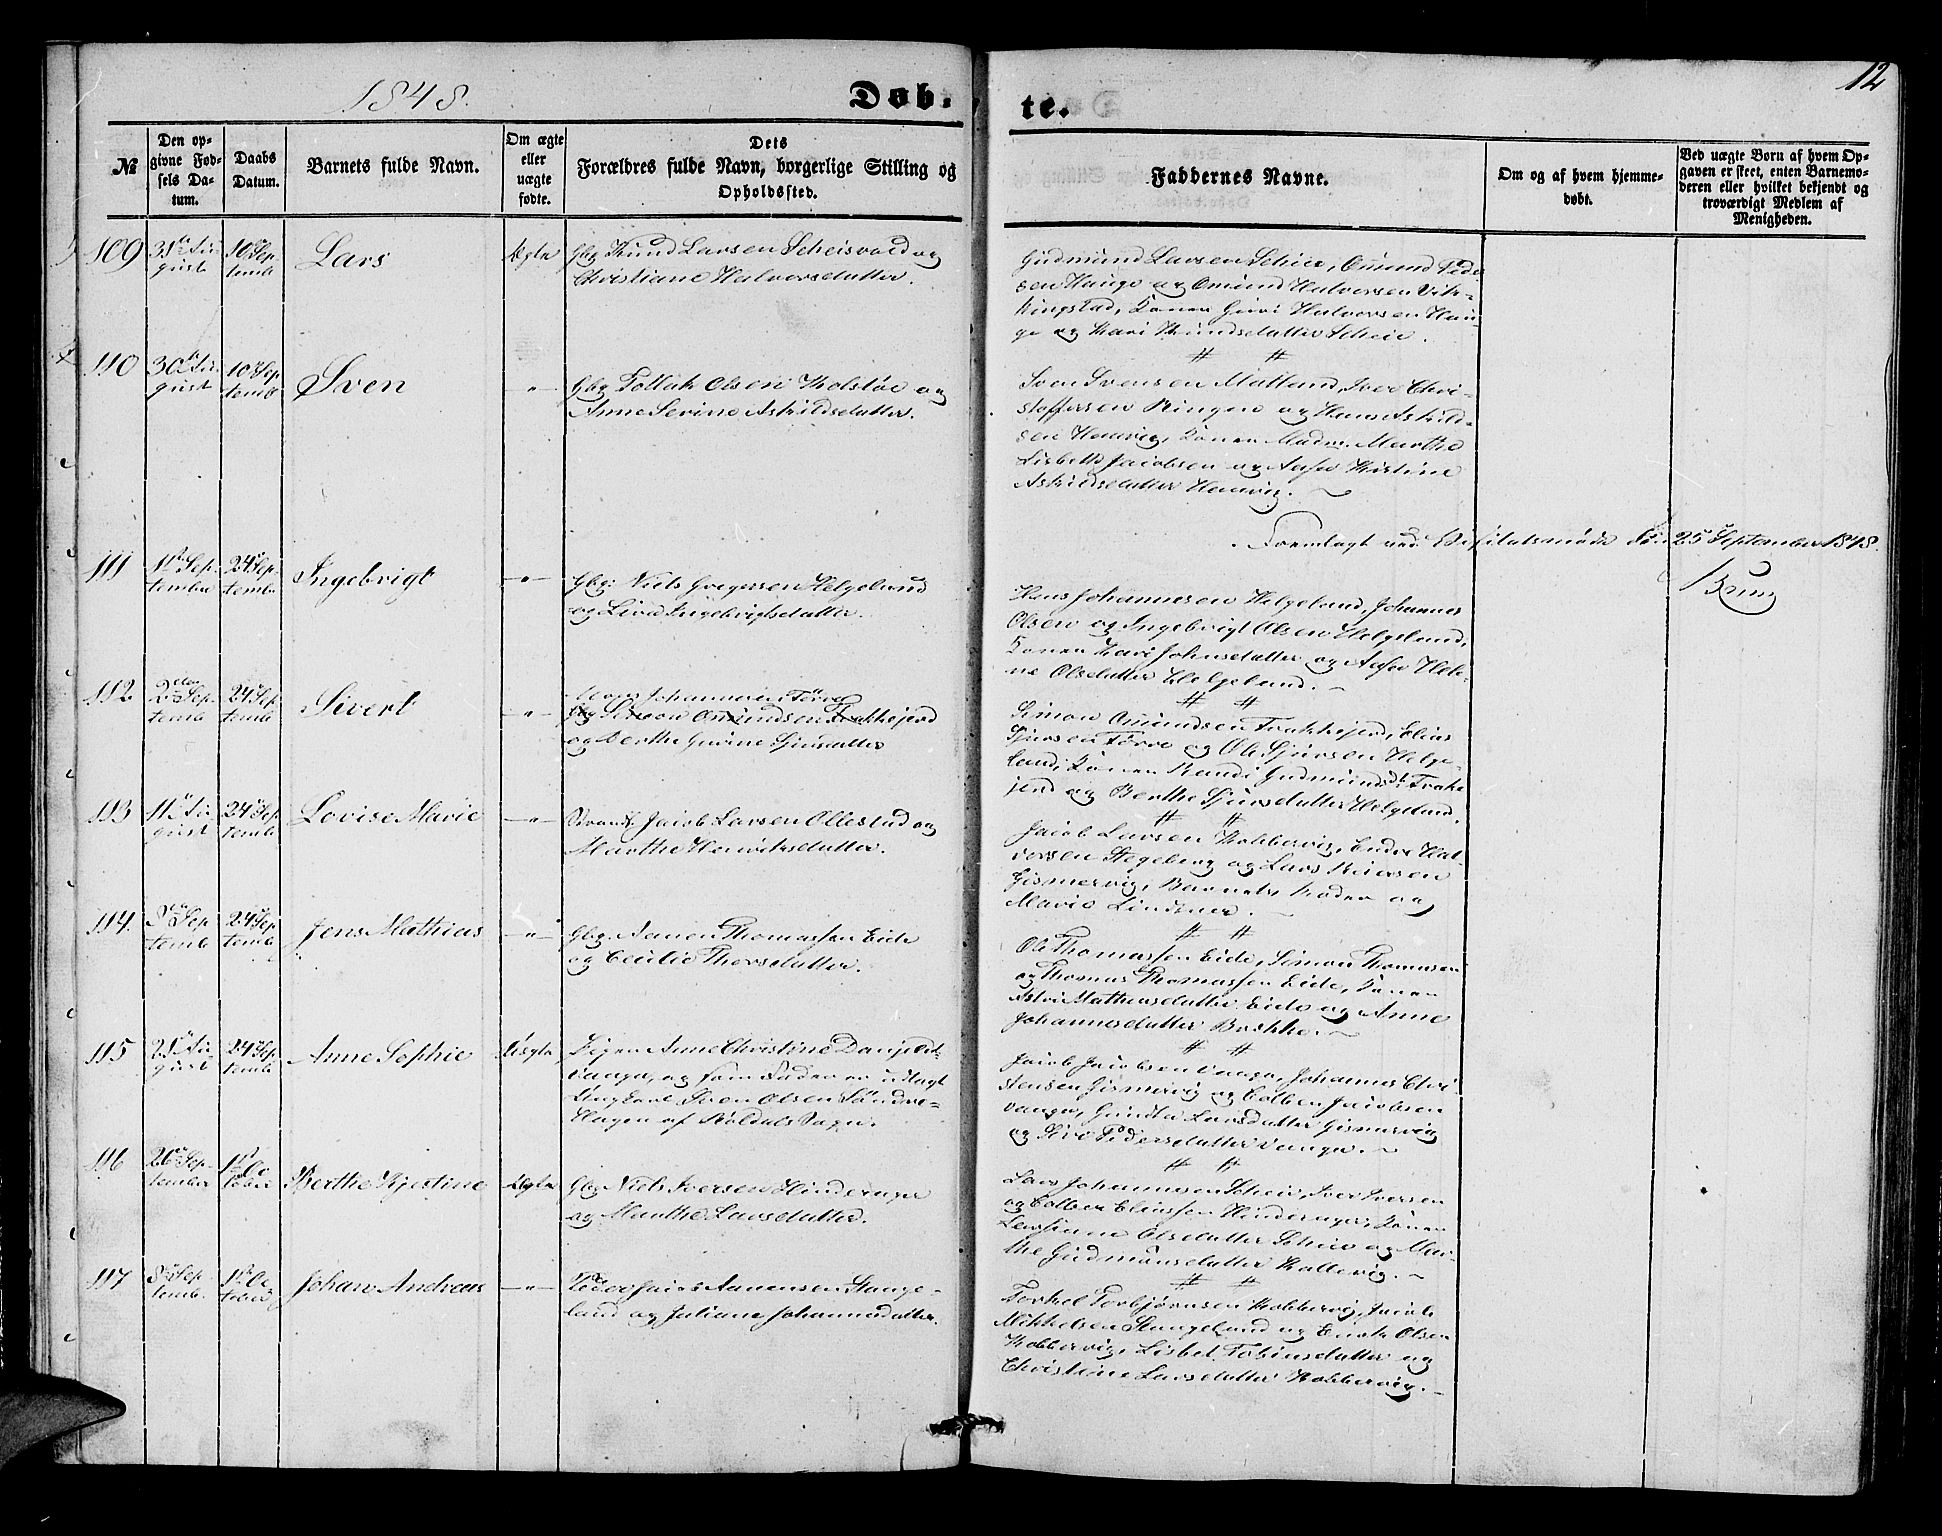 1848.
Døb-
te.
12
№
Den op-
givne Fød-
sels Da-
tum.
Daabs
Datum.
Barnets fulde Navn.
Om ægte
eller
uægte
fødte.
Dets
Forældres fulde Navn, borgerlige Stilling og
Opholdssted.
Faddernes Navne.
Om og af hvem hjemme-
døbt.
Ved uægte Børn af hvem Op-
gaven er skeet, enten Barnemo-
deren eller hvilket bekjendt og
troværdigt Medlem af
Menigheden.
109
31te Au-
gust
10de Sep-
temb
Lars
Ægte
Gbg Knud Larsen Scheisvold og
Christiane Halvorsdatter.
Gudmund Larsen Scheie, Omund Peder-
sen Hauge og Omund Halvorsen Vik-
kingstad, Konen Guri Halvorsen Hau-
ge og Kari Knudsdatter Scheie.
110
30te Au-
gust
10de Sep-
temb
Sven
-"-
Gbg Tollak Olsen Kolstøe og
Anne Serine Askildsdatter.
Sven Svensen Matland, Iver Chri-
stoffersen Ringen og Hans Askild-
sen Hauvig, Konen Madm. Marthe
Lisbeth Jacobsen og Aase Kistine
Askildsdatter Hauvig.
Fremlagt ved Visitatsmøde den 25 September 1848.
Bruun
111
1ste Sep-
tember
24de Sep-
temb
Ingebrigt
-"-
Gbg: Niels Gregersen Helgeland
og Live Ingebrigtsdatter.
Hans Johannesen Helgeland, Johannes
Olsen og Ingebrigt Olsen Helgeland,
Konen Kari Johnsdatter og Aase Hele-
ne Olsdatter Helgeland.
112
2den Sep-
temb
24de Sep-
temb
Sivert
-"-
Johannesen Førre
Gbg Simon Omundsen Frakkejord
og Berthe Gurine Sjursdatter
Simon Omundsen Frakkejord, Elias
Sjursen Førre og Ole Sjursen Helge-
land, Konen Randi Gudmundsd: Frakke-
jord og Berthe Sjursdatter Helgeland.
113
11te Au-
gust
24de Sep-
temb
Lovise Marie
-"-
Strands. Jacob Larsen Ollestad og
Marthe Henriksdatter.
Jacob Larsen Kobbervig, Endre Hal-
vorsen Stegeberg og Lars Iversen
Gismervig, Barnets Moder og
Marie Lindtner.
114.
3die Sep-
temb
24de Sep-
temb
Jens Mathias
-"-
Gbg. Aanen Thomassen Eide
og Cecilie Thorsdatter.
Ole Thomassen Eide, Simon Thomassen
og Thomas Thomassen Eide, Konen
Mathiasdatter Eide og Anne
Johannesdatter Bakke.
115
25de Au-
gust
24de Sep-
temb
Anne Sophie
Uægte
Pigen Anne Christine
Vaage, og som Fader er udlagt
Ungkarl Sven Olsen Søndre-
Hagen af Røldals Sogn.
Jacob Jacobsen Vaage, Johannes Chri-
stensen Gismervig og Colben Jacobsen
Vaage, Gunda Larsdatter Gismervig
og Live Pedersdatter Vaage.
116
26de Sep-
tember
1ste Oc-
tober
Berthe Kjestine
Ægte
Gbg Niels Iversen Hinderager
og Marthe Larsdatter.
Lars Johannesen Scheie, Iver Iversen
og Colben Eliassen Hinderager, Konen
Larsine Olsdatter Scheie og Mar-
the Gudmunsdatter Kallevig.
117
8de Sep-
temb.
1ste Oc-
tober
Johan Andreas
-"-
Peder Jacob Aanensen Stange-
land og Juliane Johannesdatter.
Torkel Torbjørnsen Kobbervig, Jacob
Mikkelsen Stangeland og Enok Olsen
Kobbervig, Lisbet Tobiasdatter og
Christine Larsdatter Kobbervig.